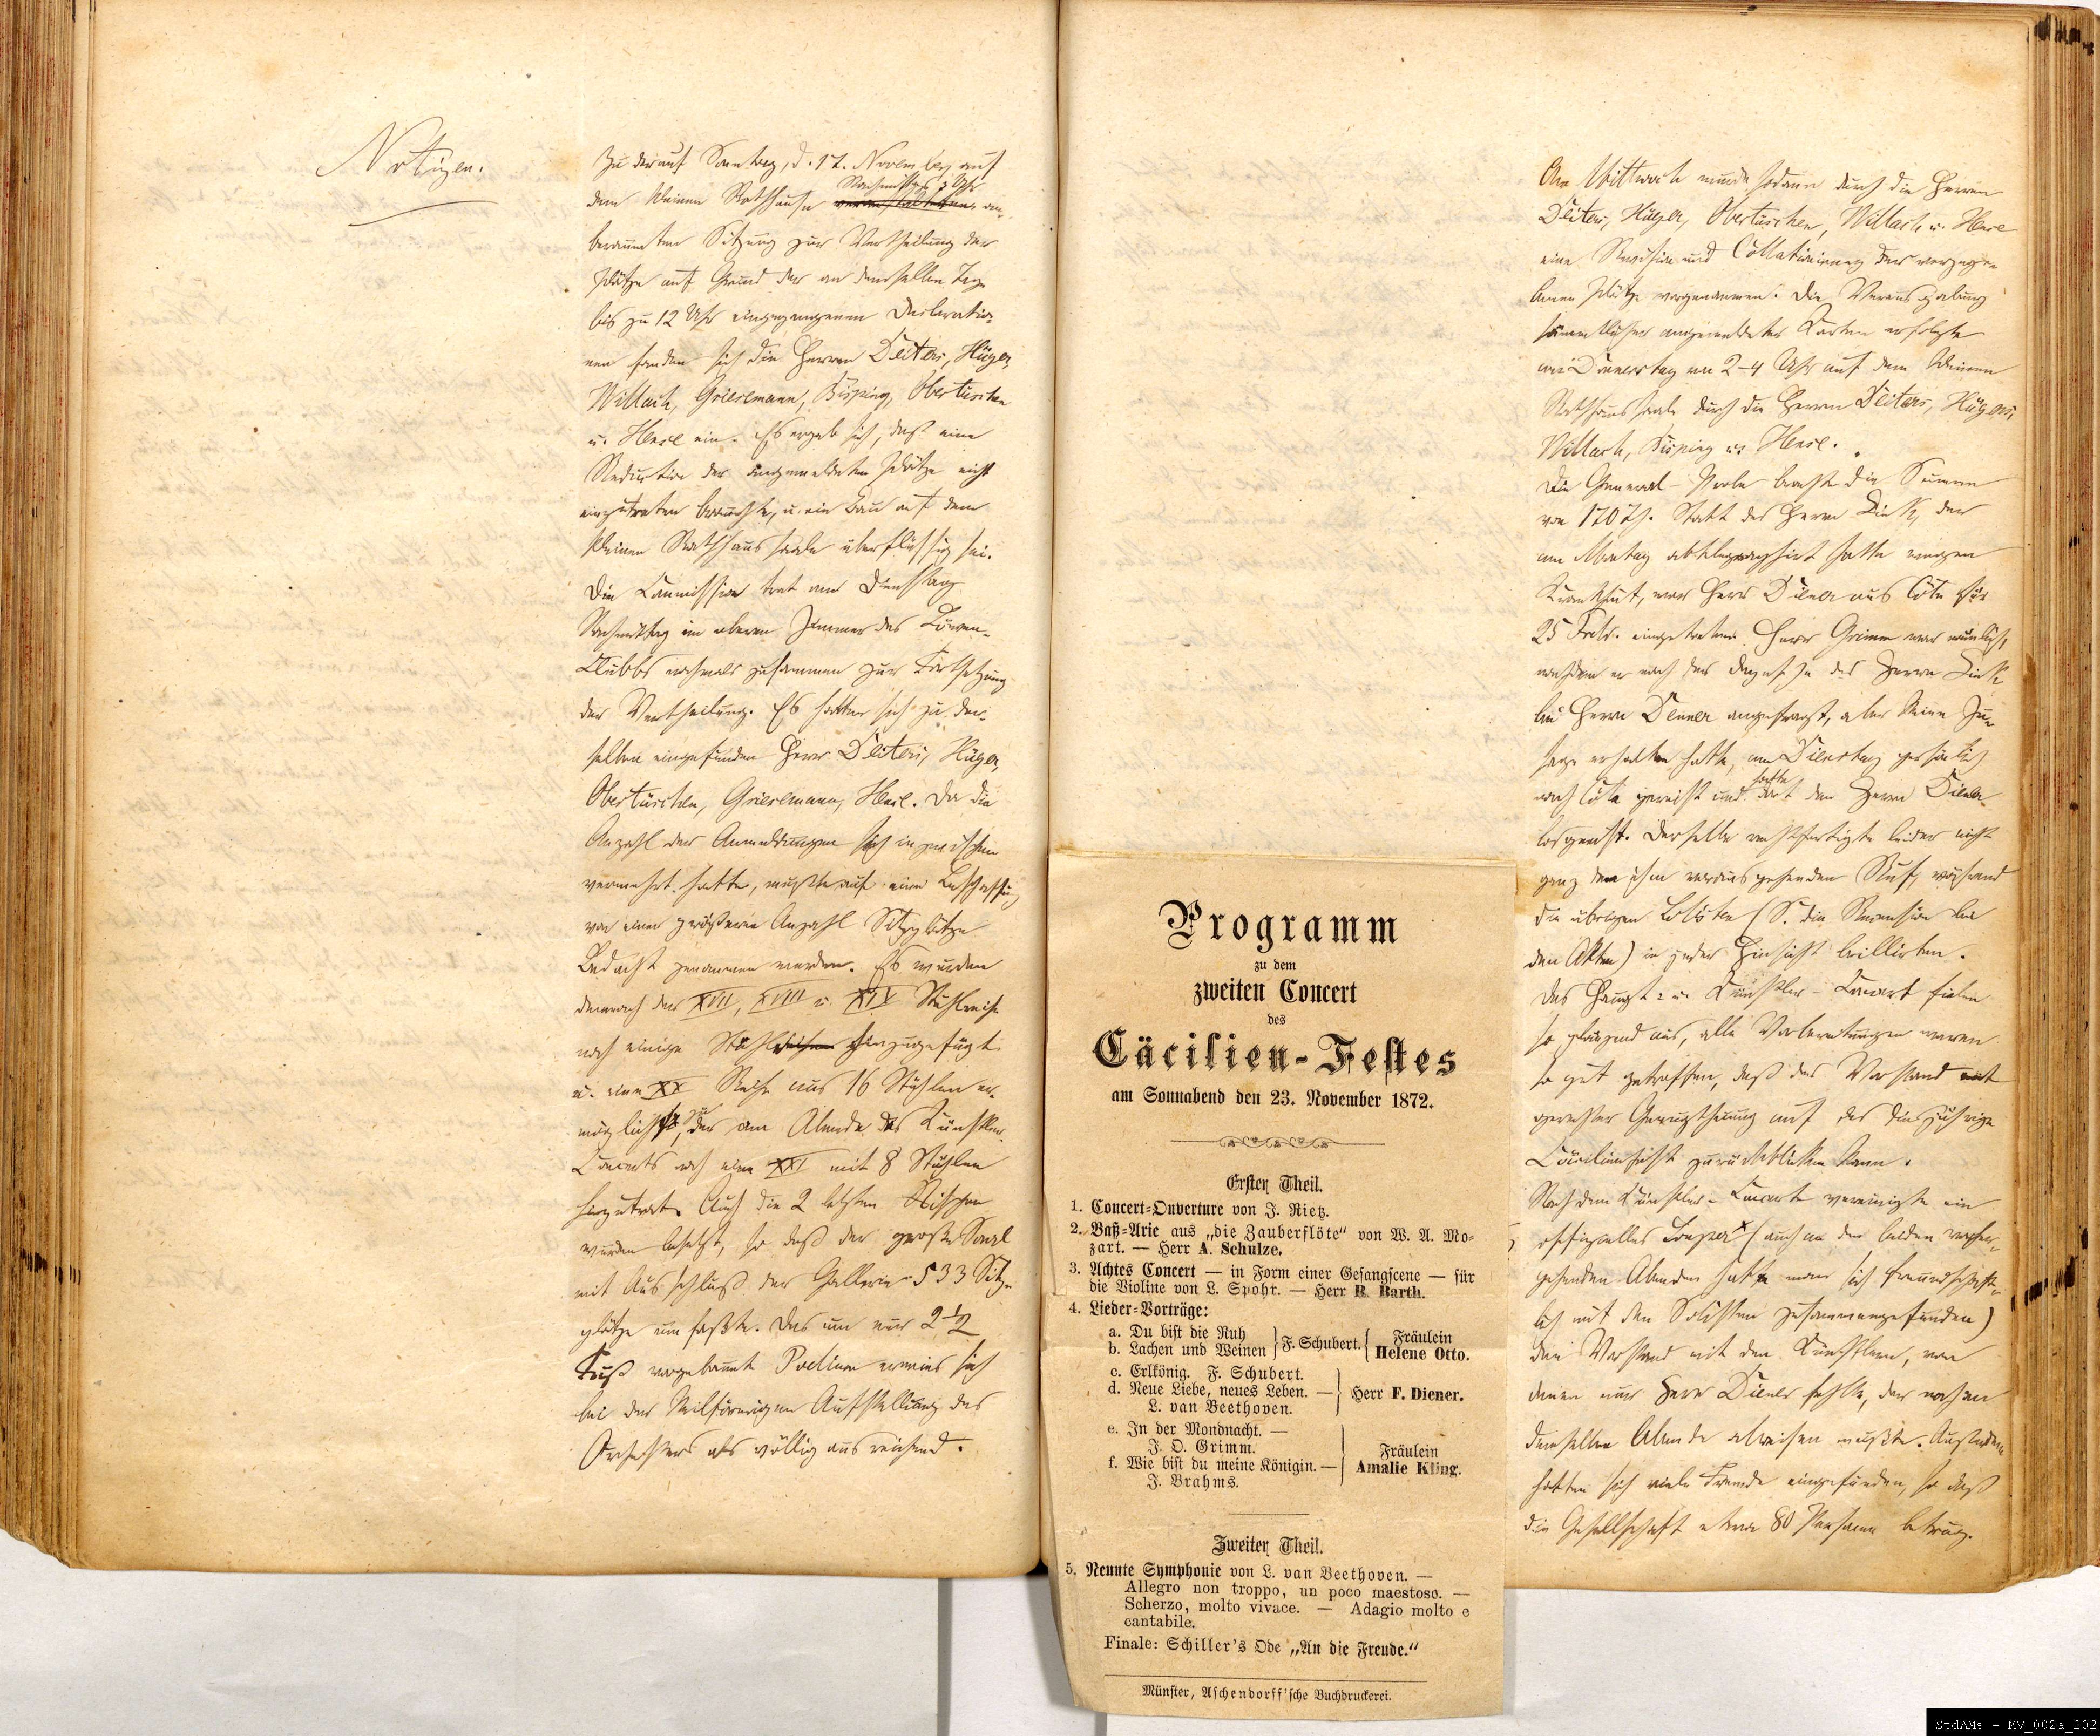 Notizen.
Zu der auf Sonntag, d. 17. November auf
dem kleinen Rathhause Nachmittags 3 Uhr an-
beraumten Sitzung zur Vertheilung der
Plätze auf Grund der an demselben Tage
bis zu 12 Uhr eingegangenen Declaratio-
nen fanden sich die Herren Deiters, Hüger,
Willach, Grieselmann, Bisping, Obertüschen
u. Hase ein. Es ergab sich, daß eine
Reduction der angemeldeten Plätze nicht
einzutreten brauchte, u. ein Bau auf dem
kleinen Rathhaussaale überflüssig sei.
Die Commission trat am Dienstag
Nachmittag im oberen Zimmer des Löwen-
Clubbs nochmals zusammen zur Fortsetzung
der Vertheilung. Es hatten sich zu der-
selben eingefunden Herr Deiters, Hüger,
Obertüschen, Grieselmann, Hase. Da die
Anzahl der Anmeldungen sich inzwischen
vermehrt hatte, mußte auf eine Beschaffung
von einer größeren Anzahl Sitzplätze
Bedacht genommen werden. Es wurden
demnach der XVII, XVIII u. XIX Stuhlreihe
noch einige Stühle hinzugefügt
u. eine XX Reihe aus 16 Stühlen er-
möglicht, der am Abende des Künstler-
Concerts noch eine XXI mit 8 Stühlen
hinzutrat. Auch die 2 letzten Nischen
wurden besetzt, so daß der große Saal
mit Ausschluß der Gallerie 533 Sitz-
plätze umfaßte. Das um nur 2 1/2
Fuß vorgebaute Podium erwies sich
bei der keilförmigen Aufstellung des
Orchesters als völlig ausreichend.
Programm
zu dem
zweiten Concert
des
Cäcilien-Festes
am Sonnabend den 23. November 1872.
Erster Theil.
1. Concert-Ouverture von J. Rietz.
2. Baß-Arie aus „die Zauberflöte“ von W. A. Mo-
zart. — Herr A. Schulze.
3. Achtes Concert — in Form einer Gesangscene — für
die Violine von L. Spohr. — Herr R. Barth.
4. Lieder-Vorträge:
a. Du bist die Ruh
b. Lachen und Weinen } F. Schubert. { Fräulein Helene Otto.
c. Erlkönig. F. Schubert.
d. Neue Liebe, neues Leben. — } Herr F. Diener.
L. van Beethoven.
e. In der Mondnacht. —
J. O. Grimm. } Fräulein
f. Wie bist du meine Königin. — Amalie Kling.
J. Brahms.
Zweiter Theil.
5. Neunte Symphonie von L. van Beethoven. —
Allegro non troppo, un poco maestoso. —
Scherzo, molto vivace. — Adagio molto e
cantabile.
Finale: Schiller's Ode „An die Freude.“
Münster, Aschendorff'sche Buchdruckerei.
Am Mittwoch wurde sodann durch die Herren
Deiters, Hüger, Obertüschen, Willach u. Hase
eine Revision und Collationirung der vergege-
benen Plätze vorgenommen. Die Verausgabung
sämmtlicher angemeldeter Karten erfolgte
am Donnerstag von 2–4 Uhr auf dem kleinen
Rathhaussaale durch die Herren Deiters, Hüger,
Willach, Bisping u. Hase.
Die General-Probe brachte die Summe
von 170 Th. Statt des Herrn Link, der
am Montag abtelegraphirt hatte wegen
Krankheit, war Herr Diener aus Cöln für
25 Frdr. eingetreten. Herr Grimm war nämlich,
nachdem er nach der Depesche des Herrn Link
bei Herrn Diener angefragt, aber keine Zu-
sage erhalten hatte, am Dienstag persönlich
nach Cöln gereist und hatte dort den Herrn Diener
losgeeist. Derselbe rechtfertigte leider nicht
ganz den ihm vorausgehenden Ruf, während
die übrigen Solisten (S. die Recension bei
den Akten) in jeder Hinsicht brillirten.
Das Haupt- u. Künstler-Concert fielen
so glänzend aus, alle Vorbereitungen waren
so gut getroffen, daß der Vorstand mit
gerechter Genugthuung auf das diesjährige
Cäcilienfest zurückblicken kann.
Nach dem Künstler-Concerte vereinigte ein
offizielles Souper x (auch an den beiden vorher-
gehenden Abenden hatte man sich freundschaft-
lich mit den Solisten zusammengefunden)
den Vorstand mit den Künstlern, von
denen nur Herr Diener fehlte, der noch an
demselben Abende abreisen mußte. Außerdem
hatten sich viele Fremde eingefunden, so daß
die Gesellschaft etwa 80 Personen betrug.
StdAMs - MV_002a_202